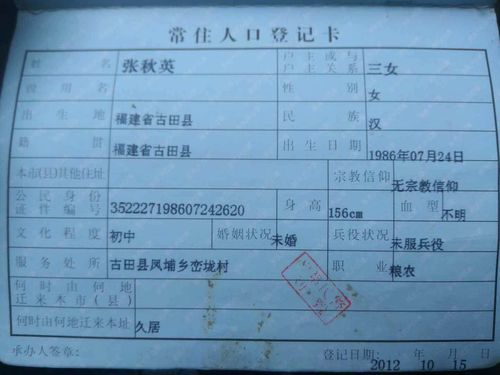 常住人口登记卡
姓名 张秋英 户主或与户主关系 三女
曾用名 性别 女
出生地 福建省古田县 民族 汉
籍贯 福建省古田县 出生日期 1986年07月24日
本市(县)其他住址 宗教信仰 无宗教信仰
公民身份证件编号 352227198607242620 身高 156cm 血型 不明
文化程度 初中 婚姻状况 未婚 兵役状况 未服兵役
服务处所 古田县凤埔乡峦垅村 职业 粮农
何时由何地迁来本市(县)
何时由何地迁来本址 久居
承办人签章: 登记日期:
2012 10 15